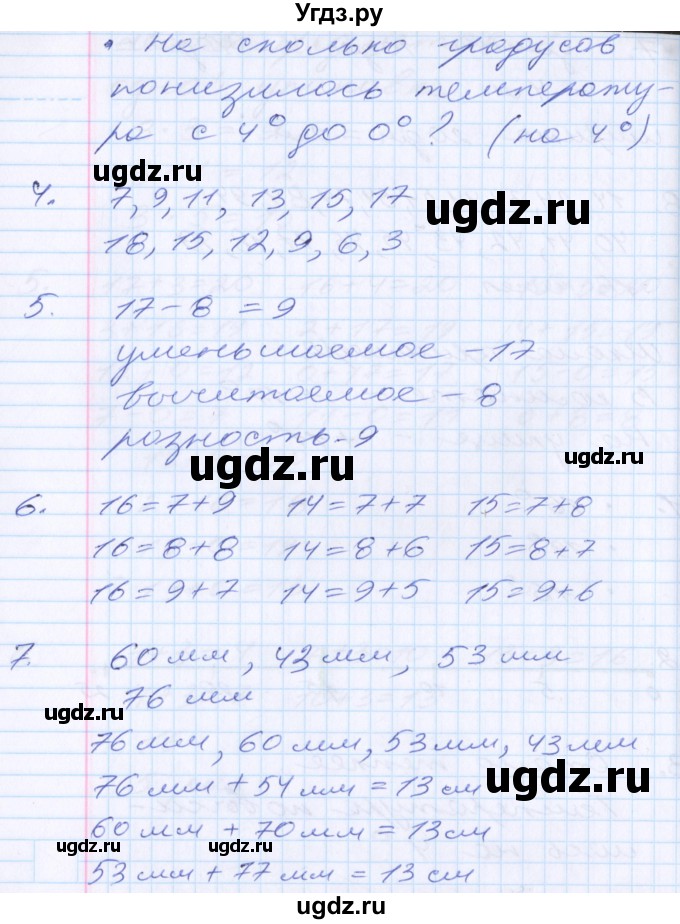 Угдз.ру
• На сколько градусов
понизилась температу-
ра с 4° до 0°? (на 4°)
ugdz.ru
ugdz.ru
4. 7, 9, 11, 13, 15, 17
18, 15, 12, 9, 6, 3
5. 17-8 = 9
уменьшаемое - 17
вычитаемое - 8
разность-9
ugdz.ru
ugdz.ru
6. 16=7+9 14=7+7 15=7+8
16=8+8 14=8+6 15=8+7
16=9+7 14=9+5 15=9+6
7. 60 мм, 43 мм, 53 мм
76 мм
ugdz.ru
76 мм, 60 мм, 53 мм, 43 мм
ugdz.ru
76 мм + 54 мм = 13 см
60 мм + 70 мм = 13 см
ugdz.ru
53 мм + 77 мм = 13 см
ugdz.ru